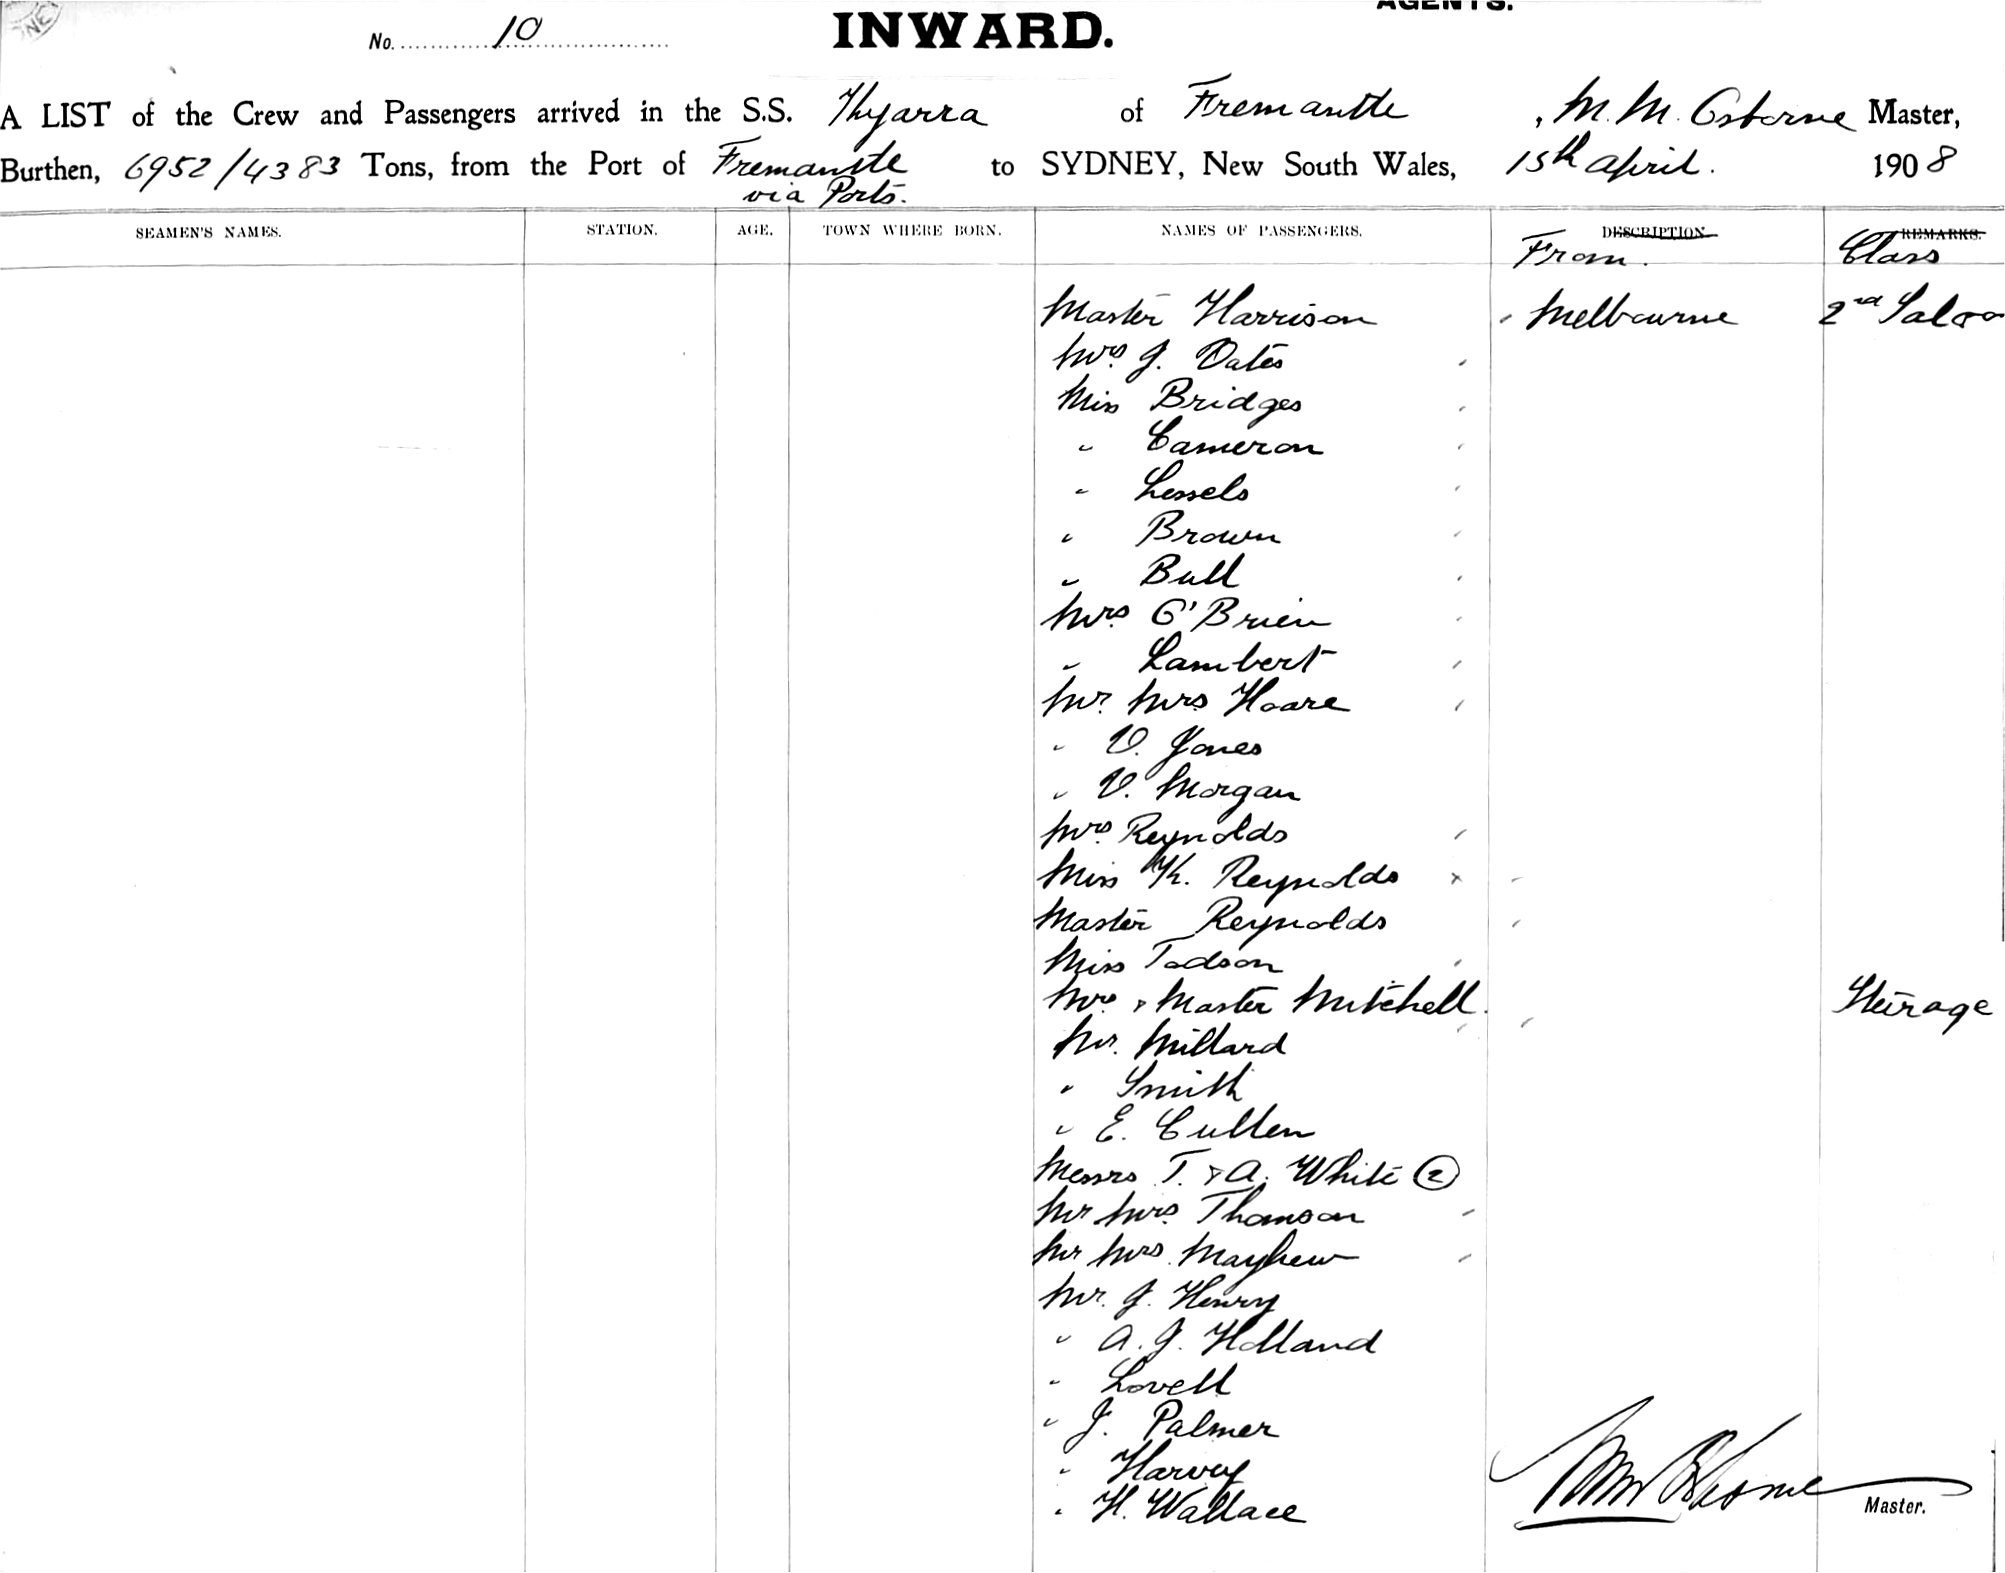 AGENTS.
No. 10
INWARD.
A LIST of the Crew and Passengers arrived in the S.S. Kyarra of Fremantle, M. M. Osborne Master,
Burthen, 6952/4383 Tons, from the Port of Fremantle via Ports. to SYDNEY, New South Wales, 15th April. 1908
SEAMEN'S NAMES. STATION. AGE. TOWN WHERE BORN. NAMES OF PASSENGERS. DESCRIPTION REMARKS.
From. Class
Master Harrison " Melbourne 2nd Saloo
Mrs. J. Oates
Miss Bridges
" Cameron
" Lessels
" Brown
" Bull
Mrs. O'Brien
" Lambert
Mr. Mrs Hoare
" V. Jones
" V. Morgan
Mrs. Reynolds
Miss K. Reynolds
Master Reynolds
Miss Todson
Mrs. & Master Mitchell. Steerage
Mr. Millard
" Smith
" E. Cullen
Messrs T. & A. White 2
Mr Mrs. Thomson
Mr Mrs. Mayhew
Mr. J. Henry
" A. J. Holland
" Lovell
" J. Palmer
" Harvey
" H. Wallace
MM Osborne
Master.